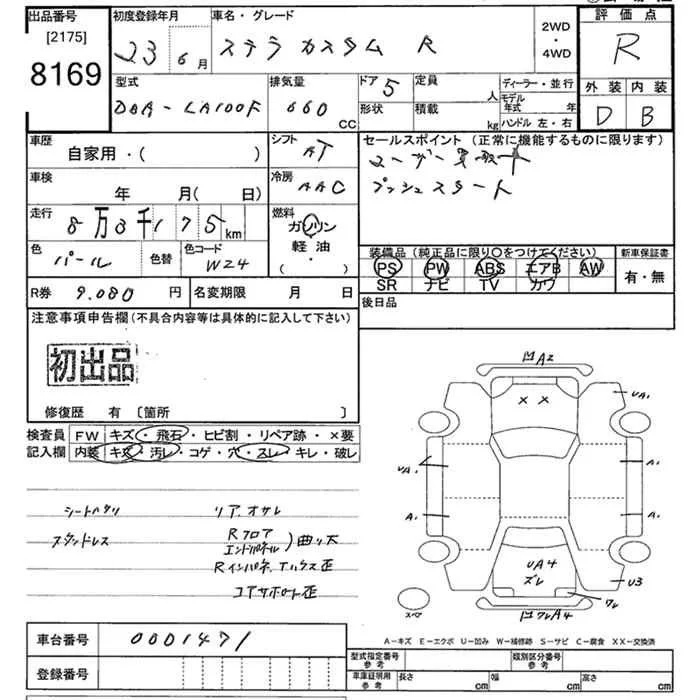 出品番号
[2175]
8169
初度登録年月
23 6月
車名・グレード
ステラ カスタム R
2WD
・
4WD
評価点
R
外装 内装
D B
型式
DBA-LA100F
排気量
660
CC
ドア 5
形状
定員
人
積載
kg
ディーラー・並行
モデル
年式 年
ハンドル 左・右
車歴
自家用・( )
シフト
AT
車検
年 月( 日)
冷房
AAC
走行
8万3千175km
燃料
ガソリン
軽油
( )
色
パール
色替
色コード
W24
セールスポイント (正常に機能するものに限ります)
ユーザー買取
プッシュスタート
装備品(純正品に限り○をつけてください)
PS PW ABS エアB AW
SR ナビ TV カワ
新車保証書
有・無
R券 9.080 円
名変期限 月 日
後日品
注意事項申告欄(不具合内容等は具体的に記入して下さい)
初出品
修復歴 有 〔箇所 〕
検査員
記入欄
FW キズ・飛石・ヒビ割・リペア跡・×要
内装 キズ・汚レ・コゲ・穴・スレ・キレ・破レ
シートハゲリ
スタッドレス
リア、オサレ
Rフロア
エンドパネル)曲り大
Rインパネ、
コアサポート歪
A2
××
UA1
UA1
A1
A1
A1
UA4
ズレ
U3
ワレ
ワレA4
スペア
A-キズ E-エクボ U-凹み W-補修跡 S-サビ C-腐食 XX-交換済
車台番号
0001471
登録番号
型式指定番号
参考
類別区分番号
参考
車庫証明用
参考
長さ cm
幅 cm
高さ cm